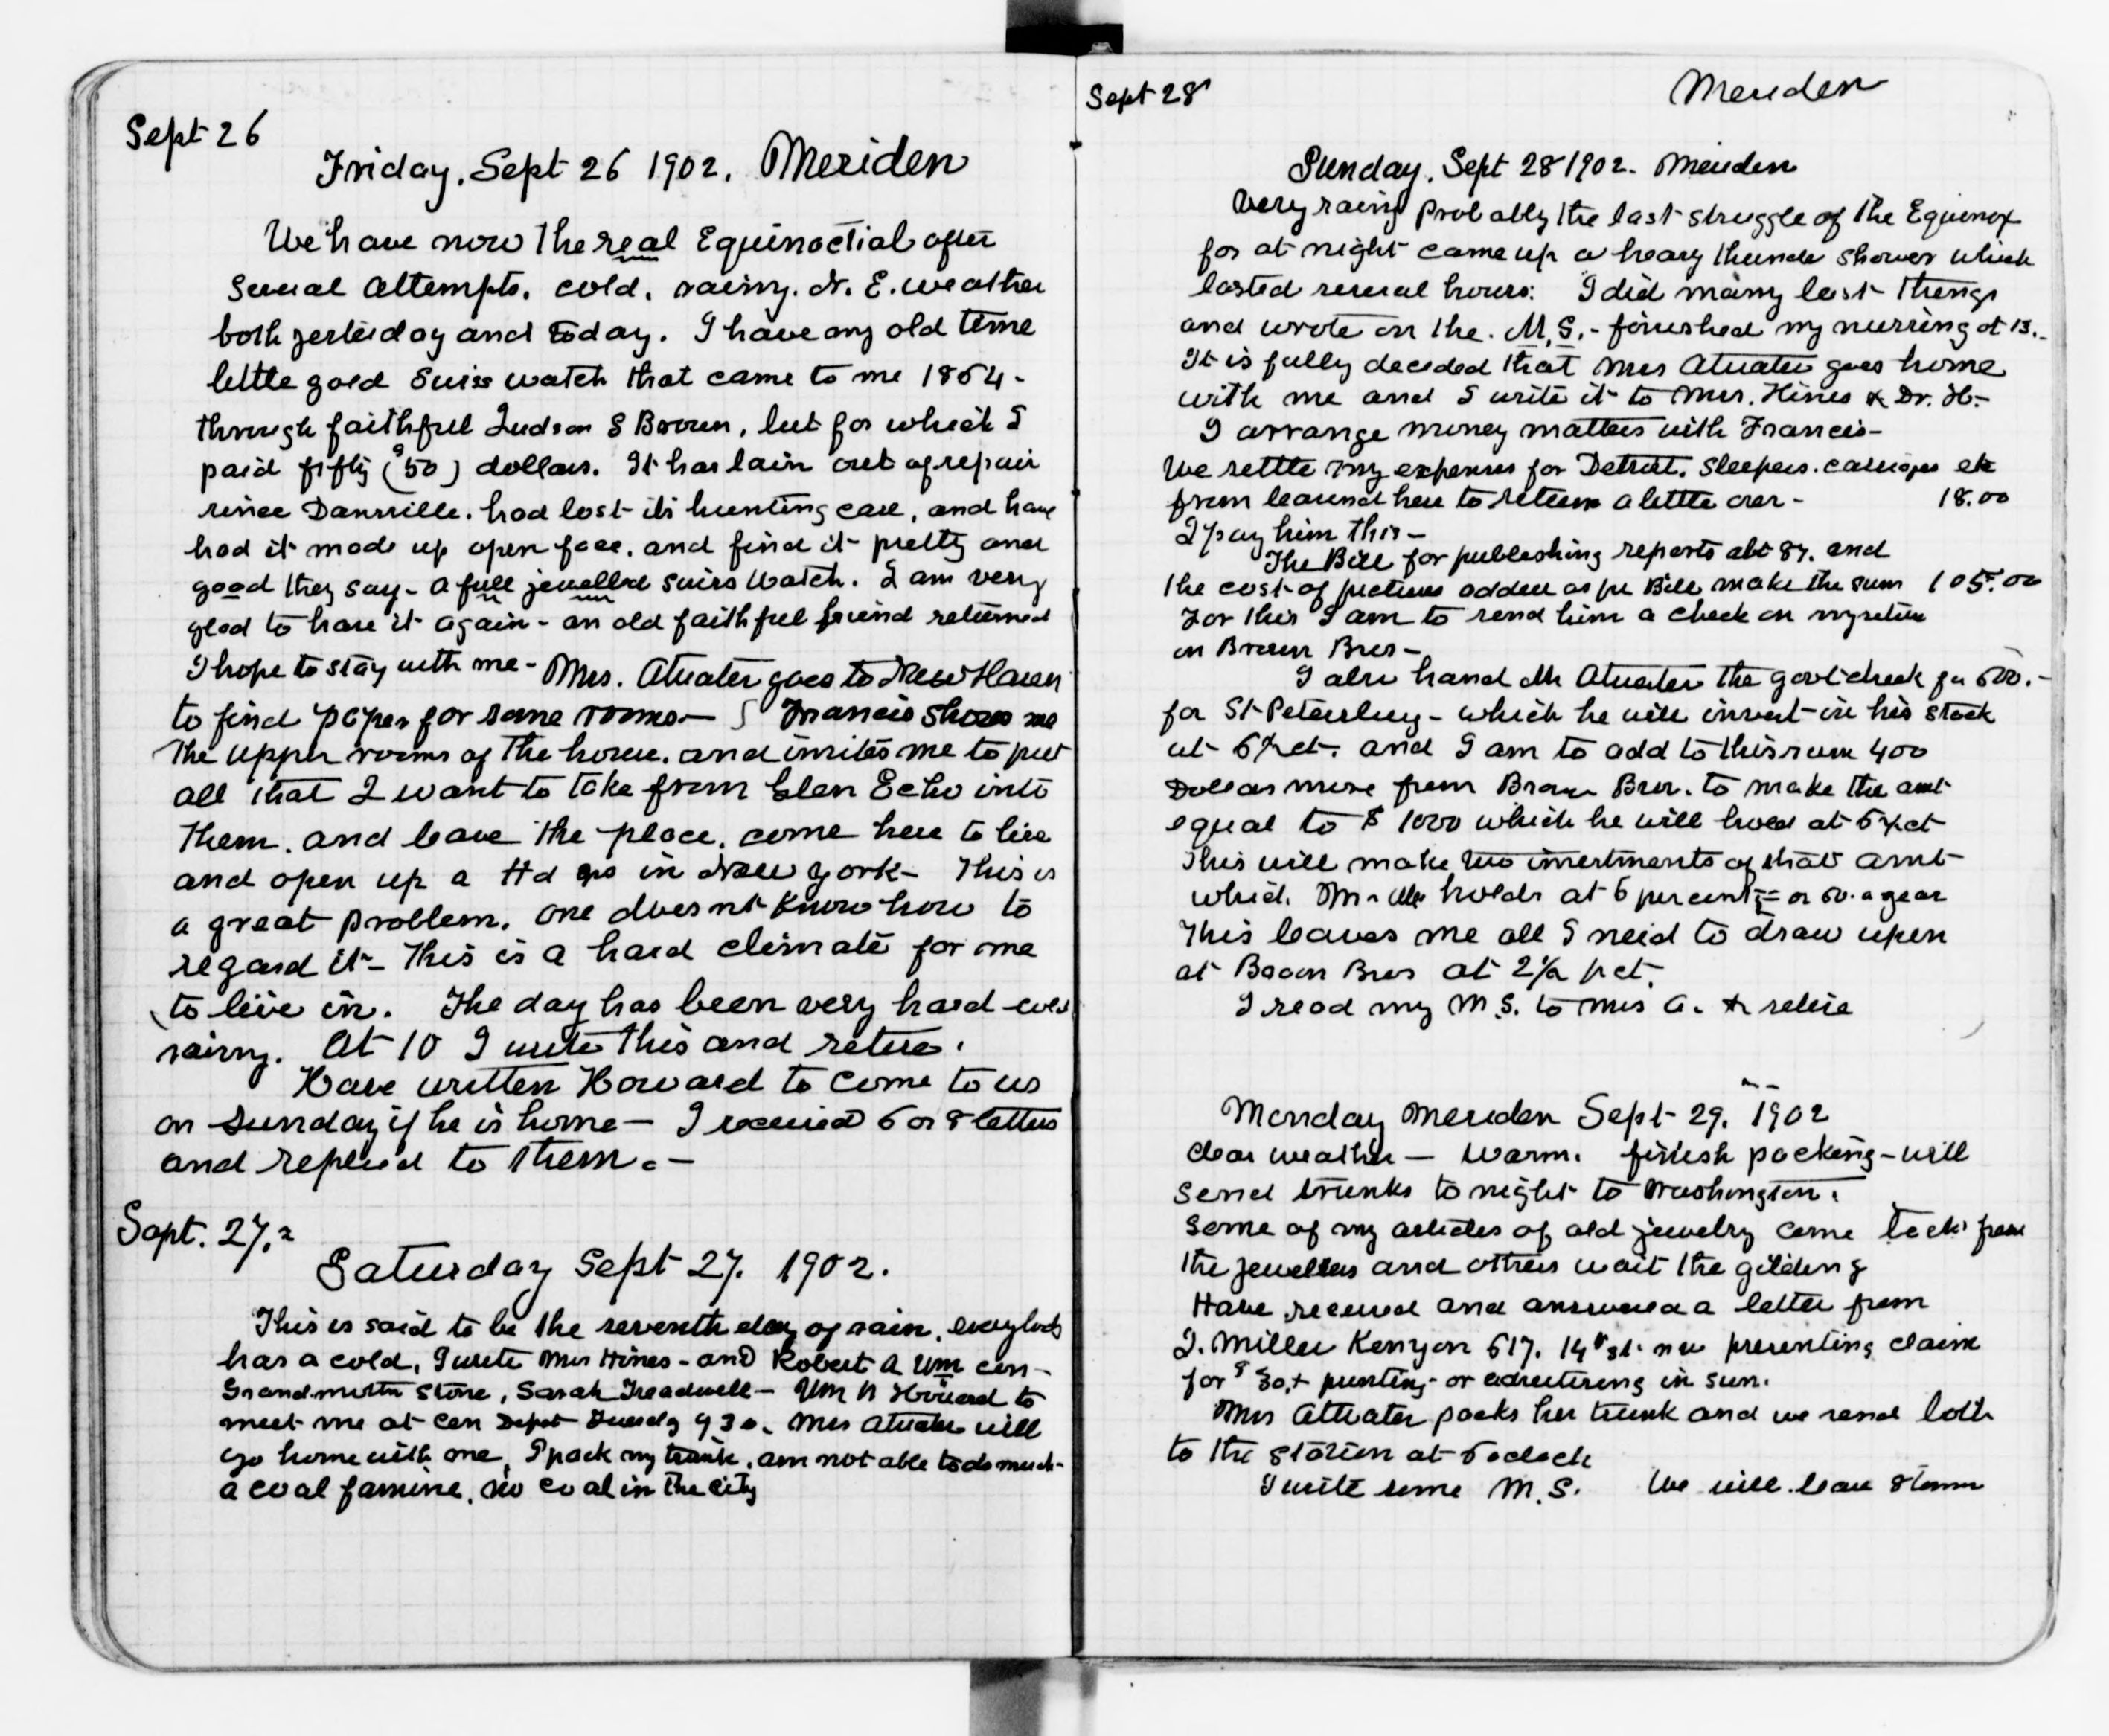 Sept 26
Friday, Sept 26 1902. Meriden
We have now the real Equinoctial after
several attempts. cold, rainy. N. E. weather
both yesterday and today. I have my old time
little gold Swiss watch that came to me 1864-
through faithful Judson S Brown, but for which I
paid fifty ($50) dollars. It has lain out of repair
since Dansville. had lost its hunting case, and have
had it made up open face, and find it pretty and
good they say - a full jewelled Swiss Watch. I am very
glad to have it again - an old faithful friend returned
I hope to stay with me - Mrs. Atwater goes to New Haven
to find paper for some rooms - Francis shows me
the upper rooms of the house. and invites me to put
all that I want to take from Glen Echo into
them. and leave the place. come here to live
and open up a Hd qrs in New York - This is
a great problem. one does not know how to
regard it - This is a hard climate for me
to live in. The day has been very hard - cold
rainy. At 10 I write this and retire.
Have written Howard to come to us
on Sunday if he is home - I received 6 or 8 letters
and replied to them. -
Sept. 27.
Saturday Sept 27. 1902.
This is said to be the seventh day of rain, everybody
has a cold, I write Mrs Hines - and Robert A Wm
Grandmother Stone, Sarah Treadwell - Wm H Howard to
meet me at Cen Depot Tuesdy 9 30. Mrs Atwater will
go home with me, I pack my trunk, am not able to do much -
a coal famine, no coal in the city
Sept 28
Meriden
Sunday. Sept 28 1902. Meriden
Very rainy Probably the last struggle of the Equinox
for at night came up a heavy thunder shower which
lasted several hours: I did many last things
and wrote on the M.S. - finished my nursing at 13. -
It is fully decided that Mrs Atwater goes home
with me and I write it to Mrs. Hines & Dr. H. -
I arrange money matters with Francis -
We settle my expenses for Detroit. Sleepers. carriages etc
from leaving here to return a little over - 18.00
I pay him this -
The Bill for publishing reports abt 87. and
the cost of pictures added as per Bill make the sum 105.00
For this I am to send him a check on my return
on Brown Bros -
I also hand Mr Atwater the govt check for 600. -
for St Petersburg - which he will invest in his stock
at 6 % ct. and I am to add to this sum 400
Dollars more from Brown Bros. to make the amt
equal to $ 1000 which he will hold at 6 % ct
This will make two investments of that amt
which Mr Atw holds at 6 percent = or 60. a year
This leaves me all I need to draw upon
at Brown Bros at 2½ pct.
I read my M.S. to Mrs A. & retire
Monday Meriden Sept 29. 1902
clear weather - Warm. finish packing - will
send trunks to night to Washington.
Some of my articles of old jewelry come back from
the jewellers and others wait the gilding
Have received and answered a letter from
J. Miller Kenyon 617. 14th st. nw presenting claim
for $30.+ printing - or advertising in Sun.
Mrs Atwater packs her trunk and we send both
to the station at 6 oclock
I write some M.S. We will leave